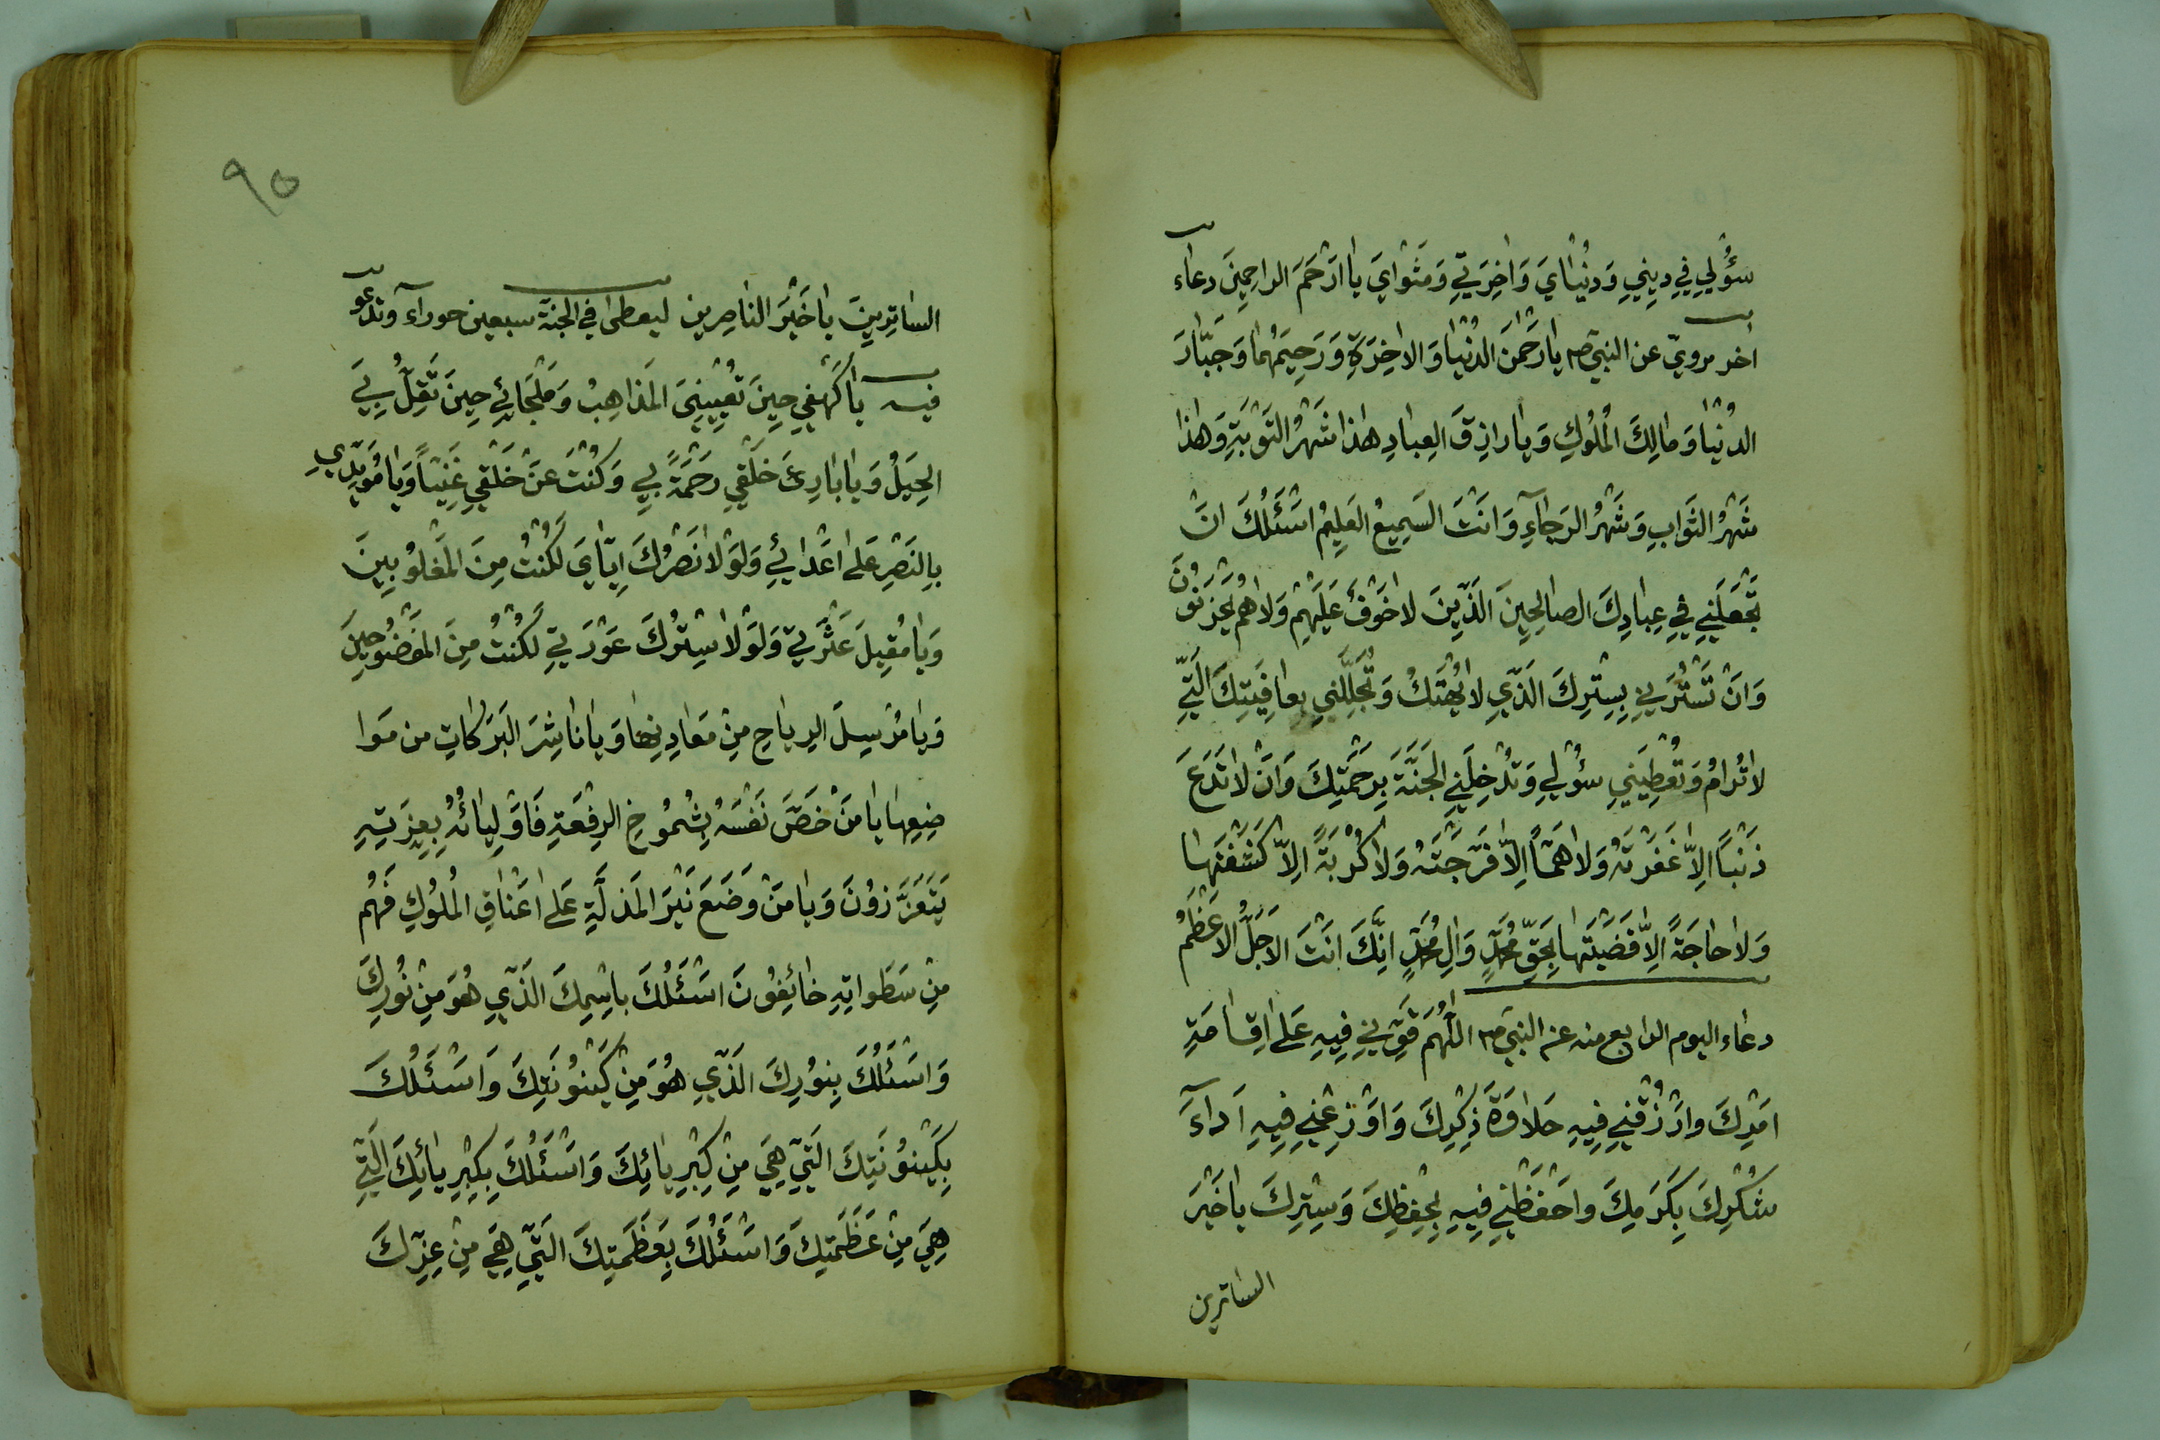 سُؤْلِي فِي دِينِي وَدُنْيَايَ وَاخِرَتِي وَمَثْوَايَ يَا اَرْحَمَ الرَاحِمِينَ دعاء
اخر مرويّ عن النبيّ ص٣ يَا رَحْمٰنَ الدُنْيَا وَالاخِرَةِ وَرَحِيمَهُمَا وَجَبَّارَ
الدُنْيَا وَمَالِكَ الْمُلُوكِ وَيَا رَازِقَ الْعِبَادِ هٰذَا شَهْرُ التَوْبَةِ وَهٰذَا
شَهْرُ الثَوَابِ وَشَهْرُ الرَجَآءِ وَاَنْتَ السَمِيعُ العَلِيمُ اَسْئَلُكَ اَنْ
تَجْعَلَنِي فِي عِبَادِكَ الصَالِحِينَ الَذِينَ لاخَوْفٌ عَلَيْهِمْ وَلاهُمْ يَحْزَنُونَ
وَاَنْ تَسْتُرَنِي بِسِتْرِكَ الَذِي لايُهْتَكُ وَتُجَلِّلَنِي بِعَافِيَتِكَ الَتِي
لاتُرَامُ وَتُعْطِيَنِي سُؤْلِي وَتُدْخِلَنِي الْجَنَّةَ بِرَحْمَتِكَ وَاَنْ لاتَدَعَ
ذَنْبًا اِلاّ غَفَرْتَهُ وَلاهَمًّا اِلاّ فَرَّجْتَهُ وَلاكُرْبَةً اِلاّ كَشَفْتَهَا
وَلاحَاجَةً اِلاّ قَضَيْتَهَا بِحَقِّ مُحَمَّدٍ وَالِ مُحَمَّدٍ اِنَّكَ اَنْتَ الاَجَلُّ الاَعْظَمُ
دعاء اليوم الرابع منه عن النبيّ ص٣ اللّهُمَ قَوِّنِي فِيهِ عَلٰى اِقَامَةِ
اَمْرِكَ وارْزُقْنِي فِيهِ حَلاوَةَ ذِكْرِكَ وَاَوْزِعْنِي فِيهِ اَدآءَ
شُكْرِكَ بِكَرَمِكَ واحْفَظْنِي فِيهِ بِحِفْظِكَ وَسِتْرِكَ يَا خَيْرَ
الساترين
٩٥
السَاتِرِينَ يَا خَيْرَ النَاصِرِين ليعطى في الجنّة سبعين حورآء وتدعو
فيه يَا كَهْفِي حِينَ تُعْيِينِيَ الْمَذَاهِبُ وَمَلْجَائِي حِينَ تَقِلُّ بِيَ
الحِيَلُ وَيَا بَارِئَ خَلْقِي رَحْمَةً بِي وَكُنْتَ عَنْ خَلْقِي غَنِيًّا وَيَا مُؤَيِّدِي
بِالنَصْرِ عَلٰى اَعْدَائِي وَلَوْلا نَصْرُكَ اِيَّايَ لَكُنْتُ مِنَ الْمَغْلُوبِينَ
وَيَا مُقِيلَ عَثْرَتِي وَلَوْلا سِتْرُكَ عَوْرَتِي لَكُنْتُ مِنَ الْمَفْضُوحِينَ
وَيَا مُرْسِلَ الرِيَاحِ مِنْ مَعَادِنِهَا وَيَا نَاشِرَ الْبَرَكَاتِ من مَوَا
ضِعِهَا يَا مَنْ خَصَّ نَفْسَهُ بِشُمُوخِ الرِفْعَةِ فَاَوْلِيَائُهُ بِعِزَّتِهِ
يَتَعَزَّزُونَ وَيَا مَنْ وَضَعَ نَيْرَ الْمَذَلَّةِ عَلٰى اَعْنَاقِ الْمُلُوكِ فَهُمْ
مِنْ سَطَوَاتِهِ خَائِفُونَ اَسْئَلُكَ بِاسْمِكَ الَذِي هُوَ مِنْ نُورِكَ
وَاَسْئَلُكَ بِنُورِكَ الَذِي هُوَ مِنْ كَيْنُونَتِكَ وَاَسْئَلُكَ
بِكَيْنُونَتِكَ الَتِي هِيَ مِنْ كِبْرِيَائِكَ وَاَسْئَلُكَ بِكِبْرِيَائِكَ الَتِي
هِيَ مِنْ عَظَمَتِكَ وَاَسْئَلُكَ بِعَظَمَتِكَ الَتِي هِيَ مِنْ عِزِّكَ